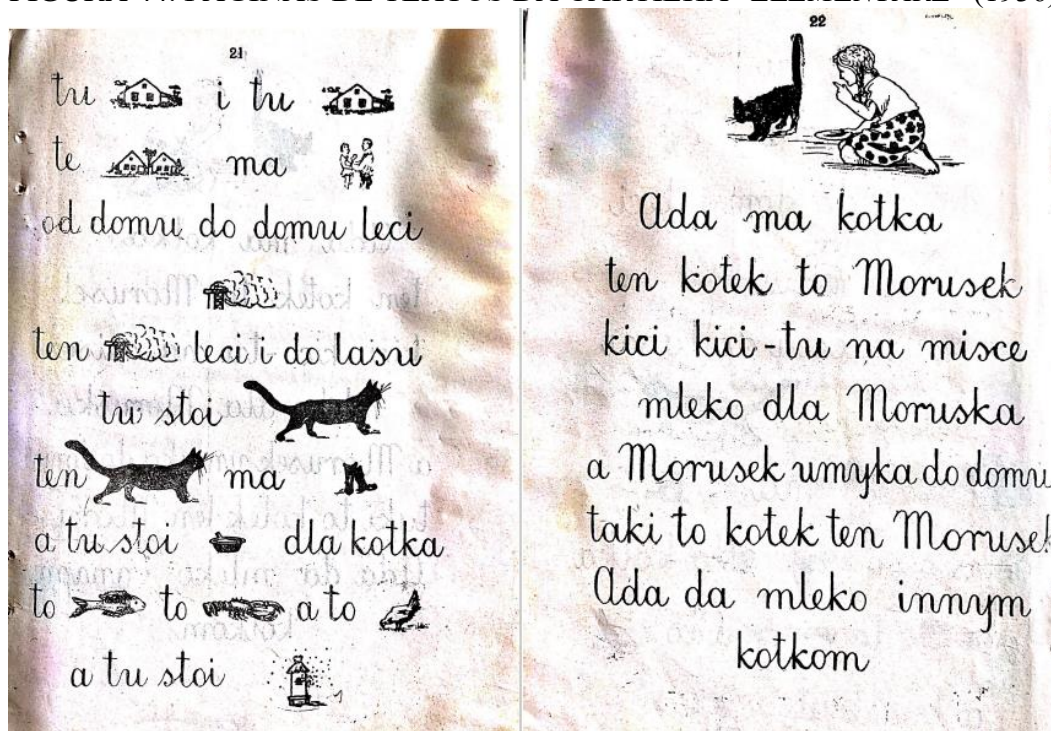 21
tu i tu
te ma
od domu do domu leci
ten leci i do lasu
tu stoi
ten ma
a tu stoi dla kotka
to to a to
a tu stoi
22
Ada ma kotka
ten kotek to Morusek
kici kici - tu na misce
mleko dla Moruska
a Morusek umyka do domu
taki to kotek ten Morusek
Ada da mleko innym
kotkom